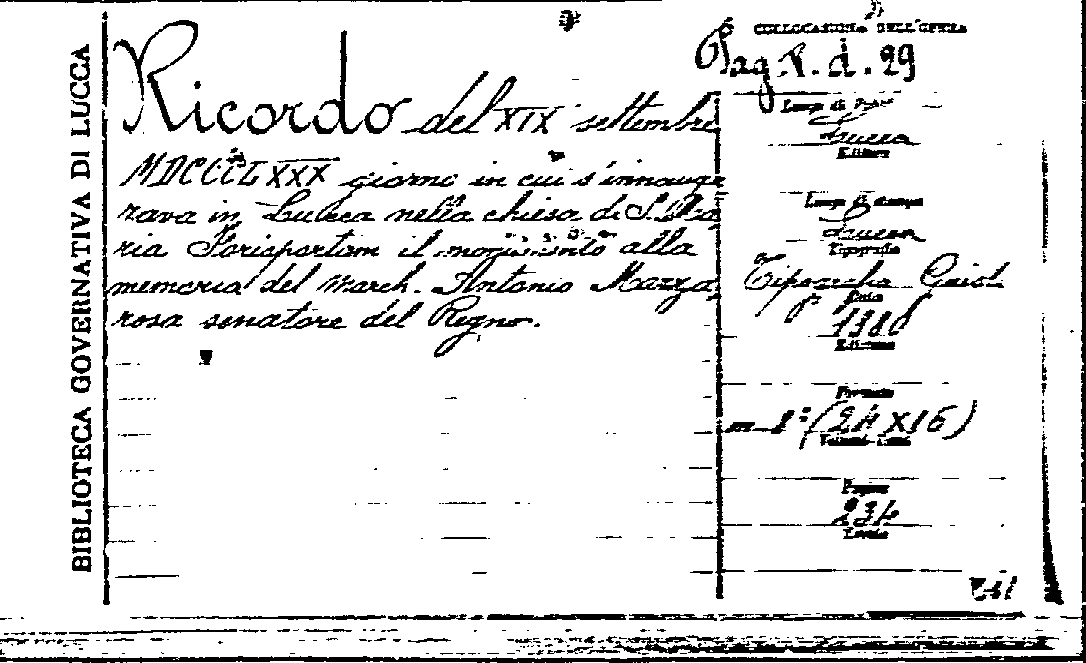 BIBLIOTECA GOVERNATIVA DI LUCCA
Ricordo del XIX settembre
MDCCCLXXX giorno in cui s'innaugu
rava in Lucca nella chiesa di S. Ma
ria Forisportam il monumento alla
memoria del March. Antonio Mazza
rosa senatore del Regno.
COLLOCAZIONE DELL'OPERA
Pag. V. d. 29
Luogo di Pubbl.
Lucca
Editore
Luogo di stampa
Lucca
Tipografia
Tipografia Giusti
Data
1880
Edizione
Formato
in 8° (24 x 16)
Pagine
234